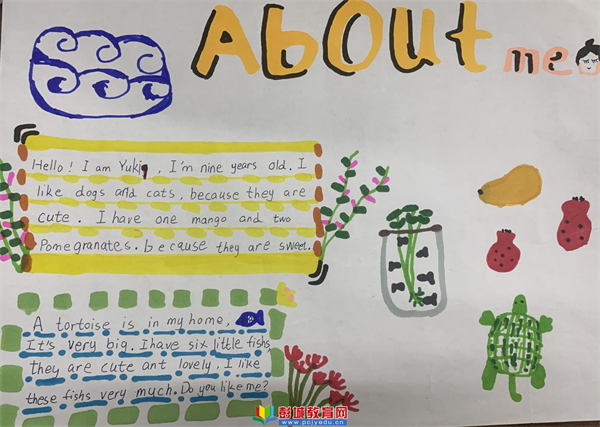 About me
Hello! I am Yuki, I'm nine years old. I
like dogs and cats, because they are
cute. I have one mango and two
Pomegranates. because they are sweet.
A tortoise is in my home,
It's very big. I have six little fishs
they are cute ant lovely. I like
these fishs very much. Do you like me?
彭城教育网
www.pcjyedu.com